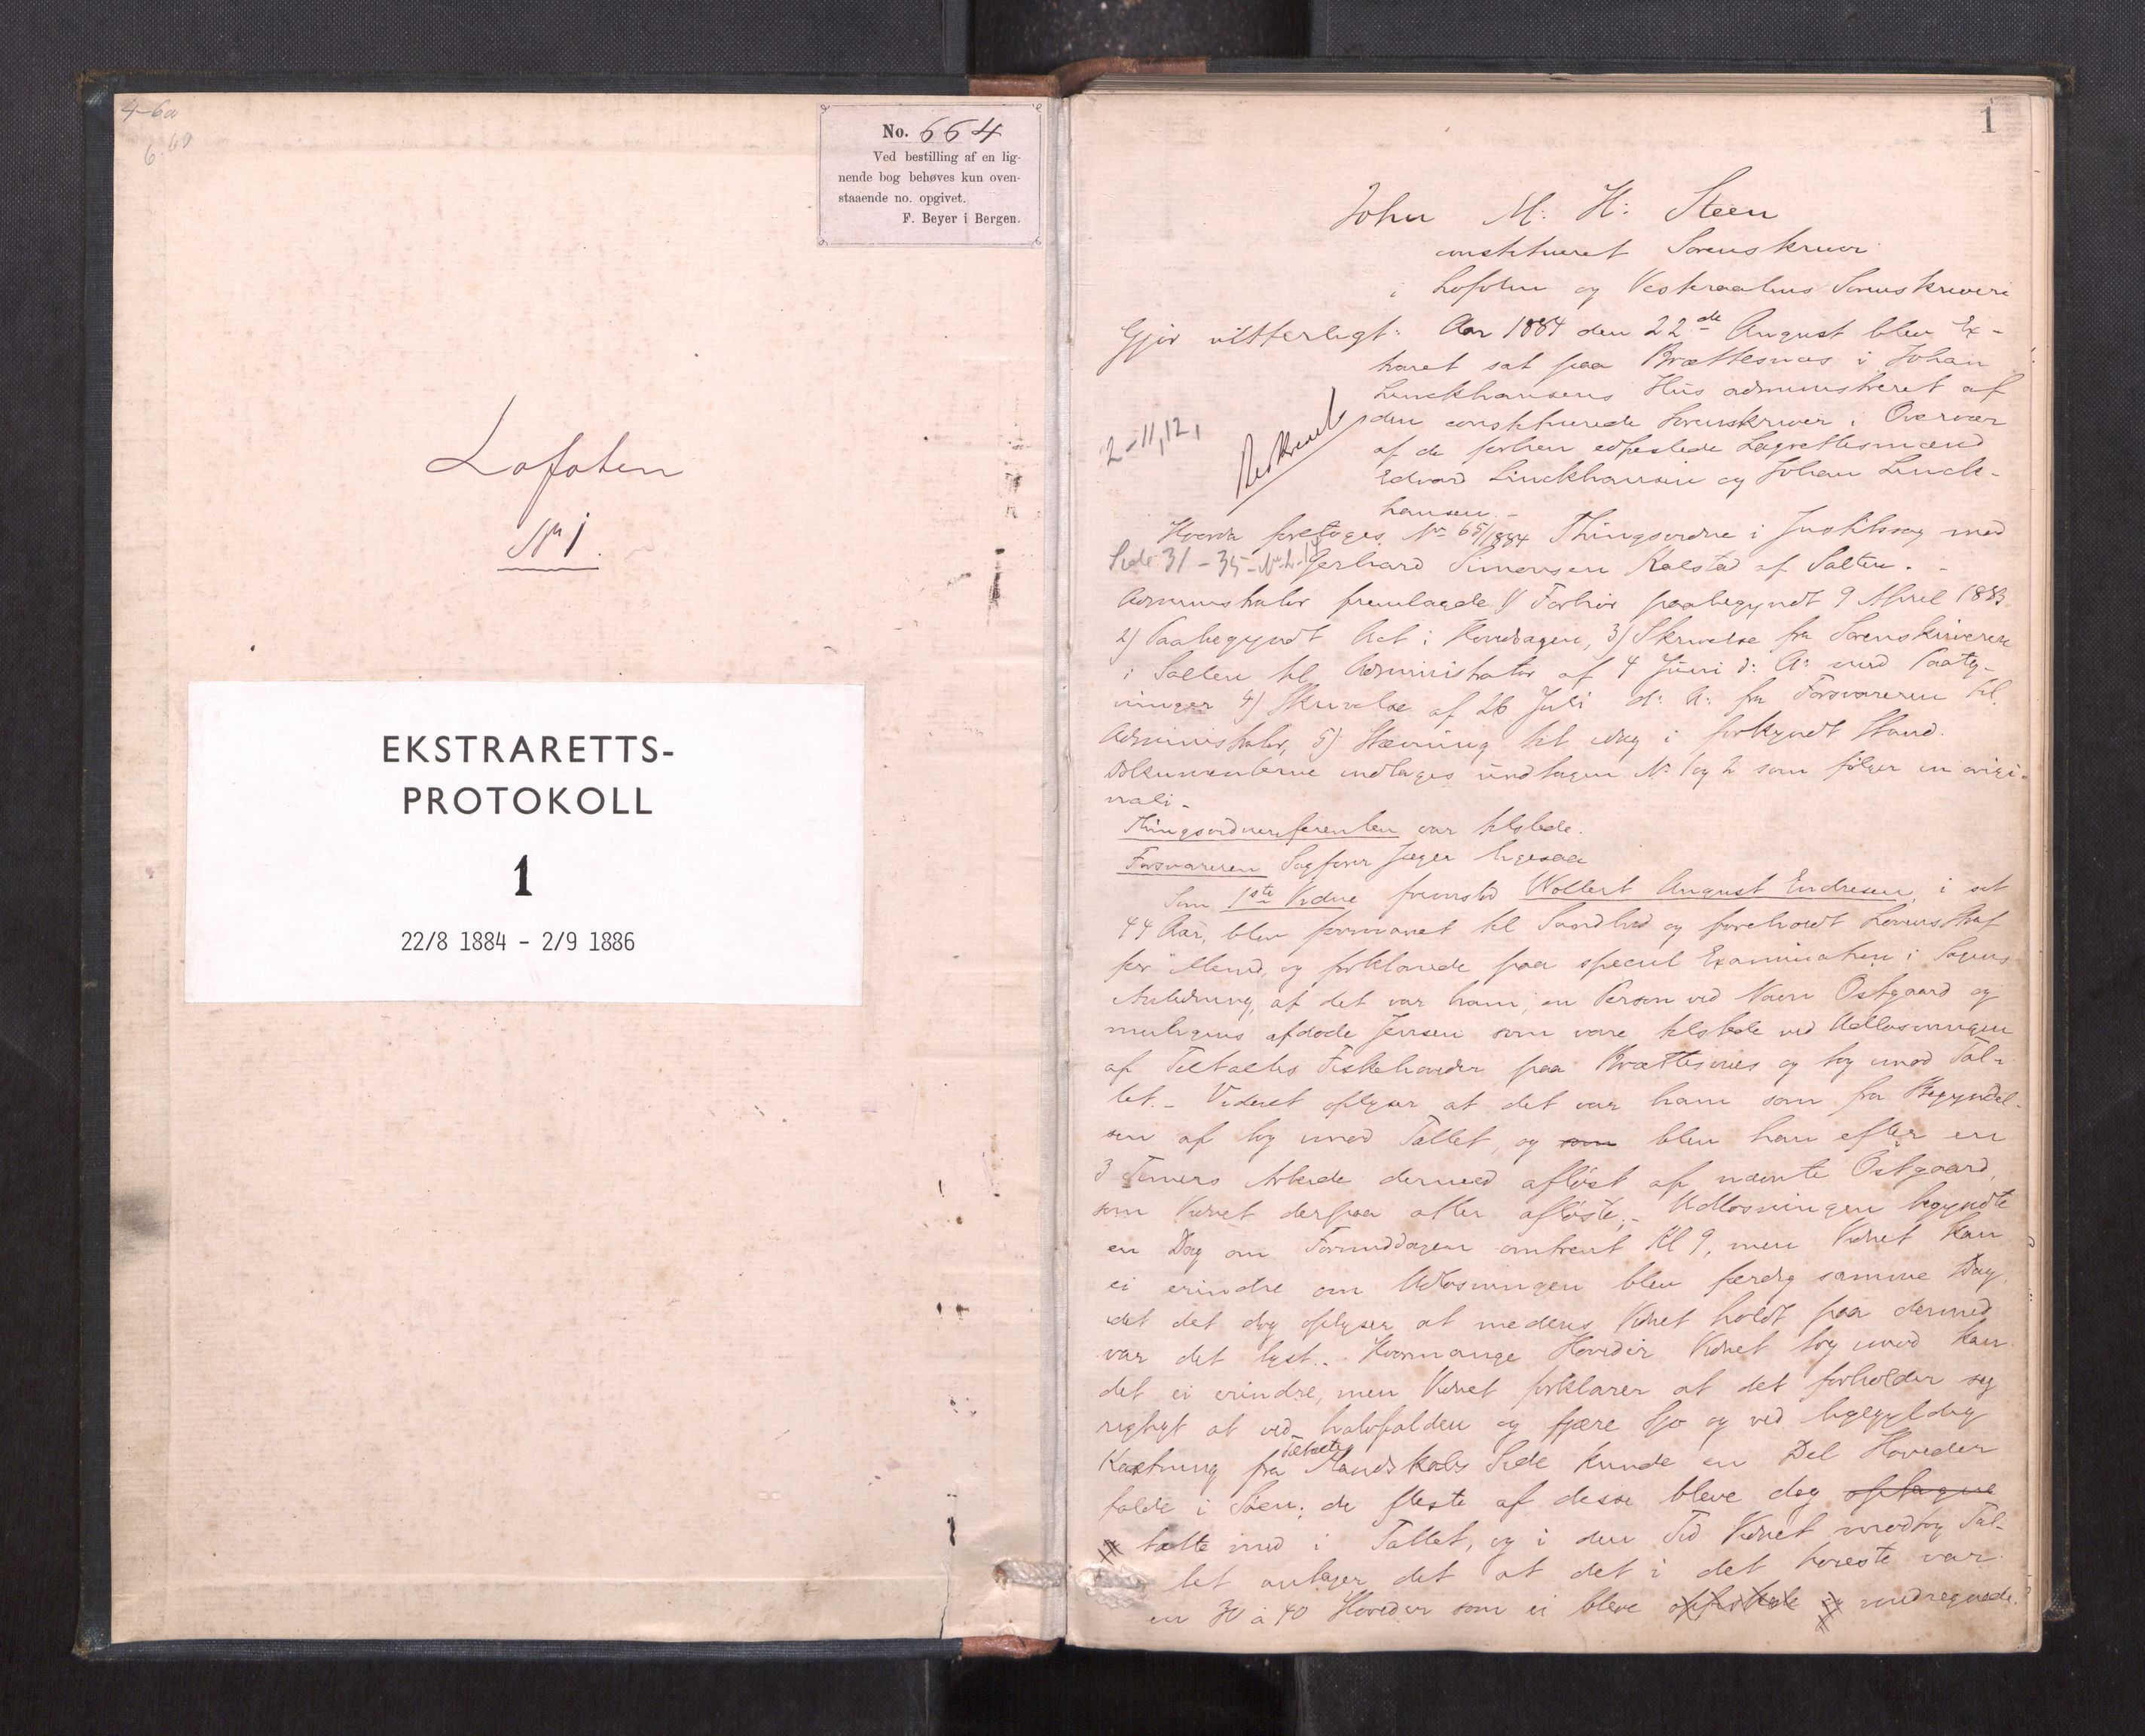 4-6a
6.60
No. 664
Ved bestilling af en lig-
nende bog behøves kun oven-
staaende no. opgivet.
F. Beyer i Bergen.
Lofoten
No 1.
EKSTRARETTS-
PROTOKOLL
1
22/8 1884 - 2/9 1886
1
John M: H: Steen
constitueret Sorenskriver
i Lofoten og Vesteraalens Sorenskriveri
Gjør vitterligt: Aar 1884 den 22de August blev Ex-
traret sat paa Brættesnæs i Johan
Linckhausens Hus administreret af
den constituerede Sorenskriver i Overvær
af de forhen edfæstede Lagrettesmænd
Edvard Linckhausen og Johan Linck-
hausen.-
2-11,12,
Beskrevet
Hvorda foretoges No 65/1884 Thingsvidne i Justitssag mod
Side 31 - 35 -
Gerhard Simonsen Kalstad af Salten. -
Administrator fremlagde 1) Forhør paabegyndt 9 April 1883
2) Paabegyndt Act i Hovedsagen, 3) Skrivelse fra Sorenskriveren
i Salten til Administrator af 4 Juni d: A: med Paateg-
ninger 4) Skrivelse af 26 Juli d: A: fra Forsvareren til
Administrator, 5) Stævning til idag i forkyndt Stand.
Dokumenterne indtages undtagen No 1 og 2 som følger in origi-
nali.
Thingsvidnereferenten var tilstede.
Forsvareren Sagfører Jæger ligesaa
Som 1ste Vidne fremstod Wollert August Endresen, i sit
44 Aar, blev formanet til Sandhed og foreholdt Lovens Straf
for Mened, og forklarede paa speciel Examination i Sagens
Anledning, at det var ham, en Person ved Navn Ostgaard og
muligens afdøde Jensen som vare tilstede ved Udlosningen
af Tiltaltes Fiskehoveder paa Brættesnes og tog imod Tal-
let. - Videst oplyser at det var ham som fra Begyndel-
sen af tog imod Tallet, og som blev han efter en
3 Timers Arbeide dermed afløst af nævnte Ostgaard,
som Vidnet derpaa atter afløste. - Udlosningen begyndte
en Dag om Formiddagen omtrent Kl 9, men Vidnet kan
ei erindre om Udlosningen blev færdig samme Dag,
idet det dog oplyser at medens Vidnet holdt paa dermed
var det lyst. - Hvormange Hoveder Vidnet tog imod kan
det ei erindre, men Vidnet forklarer at det forholder sig
rigtigt at ved halvfalden og fjære Sjø og ved ligegyldig
Kastning fra Tiltaltes Mandskabs Side kunde en Del Hoveder
falde i Søen; de fleste af disse bleve dog optagne
# talte med i Tallet, og i den Tid Vidnet modtog Tal-
let antager det at det i det høieste var
en 30 à 40 Hoveder som ei bleve opfiskede og medregnede.